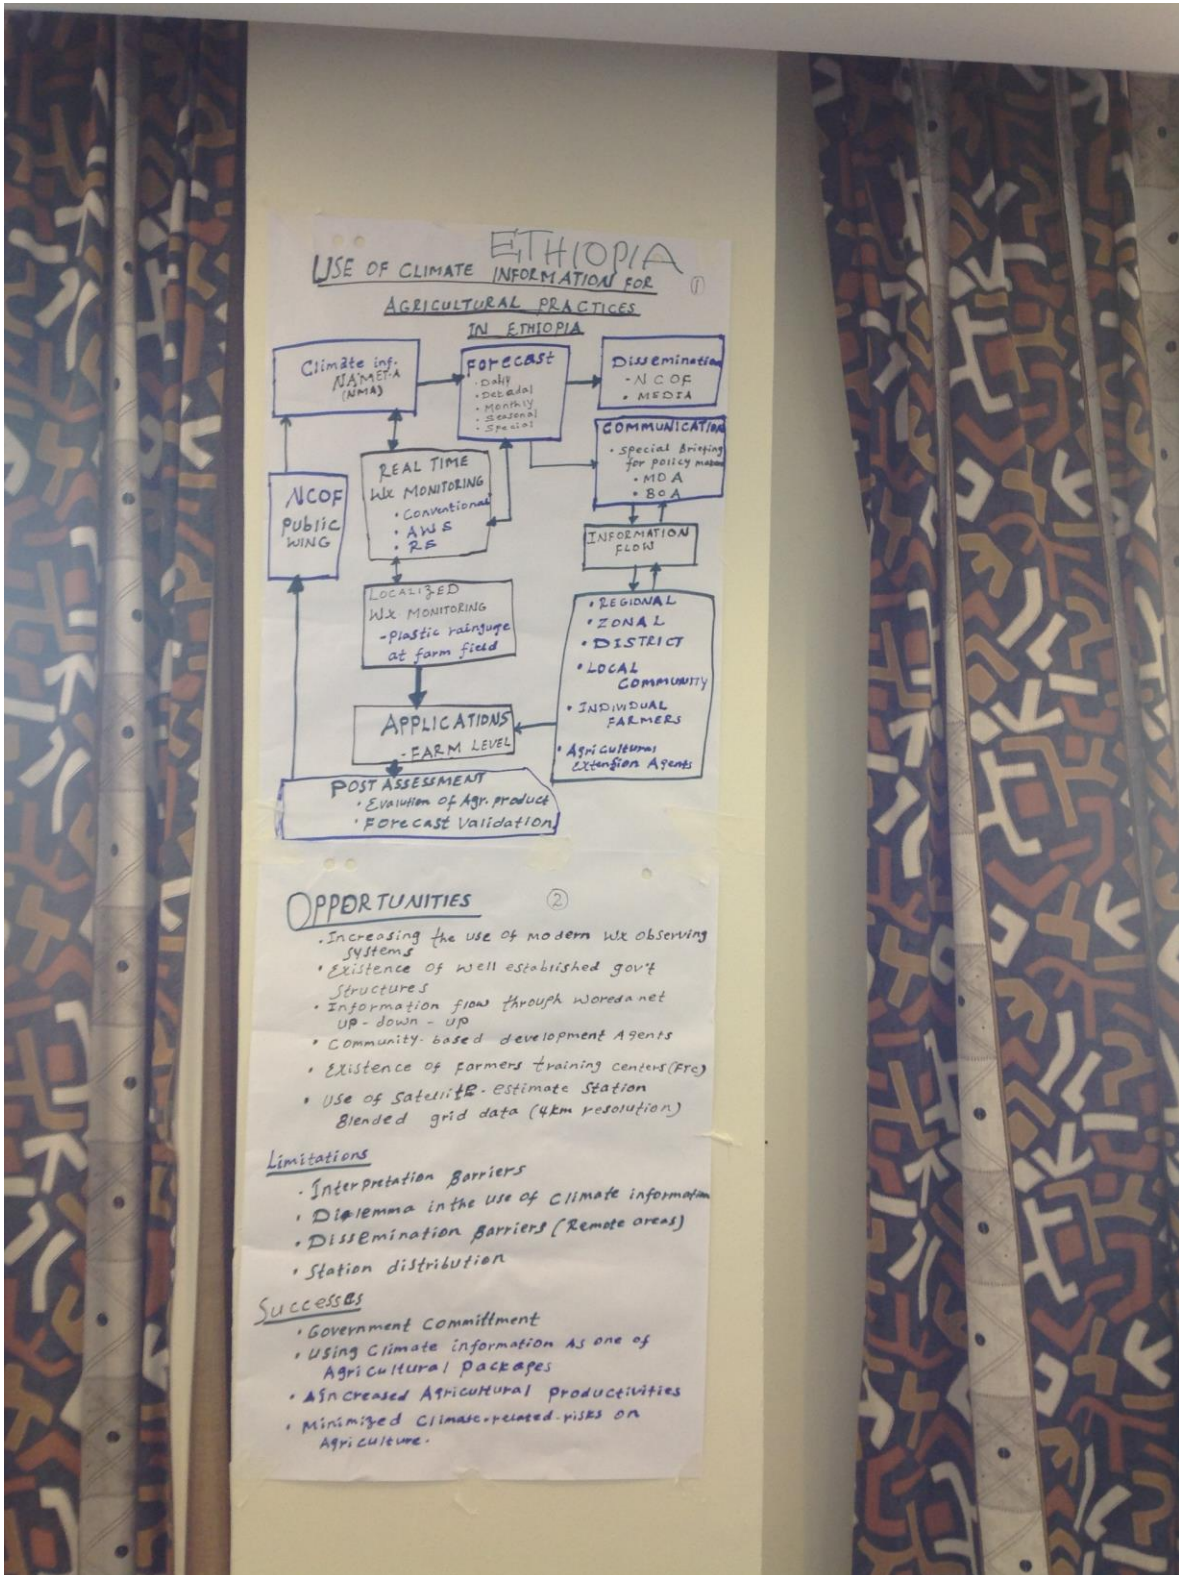 ETHIOPIA
USE OF CLIMATE INFORMATION FOR
①
AGRICULTURAL PRACTICES
IN ETHIOPIA
Climate inf.
NAMET-A
(NMA)
Forecast
• Daily
• Dekadal
• Monthly
• Seasonal
• Special
Dissemination
- NCOF
• MEDIA
COMMUNICATION
• Special Briefing
for policy makers
• MOA
• BOA
REAL TIME
Wx MONITORING
• Conventional
• AWS
• RS
NCOF
Public
WING
INFORMATION
FLOW
LOCALIZED
Wx MONITORING
- Plastic rainguge
at farm field
• REGIONAL
• ZONAL
• DISTRICT
• LOCAL
COMMUNITY
• INDIVIDUAL
FARMERS
• Agricultural
Extension Agents
APPLICATIONS
- FARM LEVEL
POST ASSESSMENT
• Evalution of Agr. product
• Forecast Validation
OPPORTUNITIES
②
• Increasing the use of modern Wx observing
systems
• Existence of well established gov't
structures
• Information flow through woreda net
up - down - up
• Community-based development Agents
• Existence of farmers training centers (FTC)
• Use of Satellite-estimate Station
Blended grid data (4km resolution)
Limitations
• Interpretation Barriers
• Dialemma in the use of Climate information
• Dissemination Barriers (Remote areas)
• Station distribution
Successes
• Government Committment
• Using Climate information As one of
Agricultural packages
• Increased Agricultural productivities
• Minimized Climate-related-risks on
Agriculture.